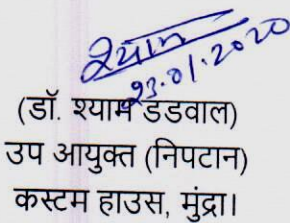 श्याम
23.01.2020
(डॉ. श्याम डडवाल)
उप आयुक्त (निपटान)
कस्टम हाउस, मुंद्रा।